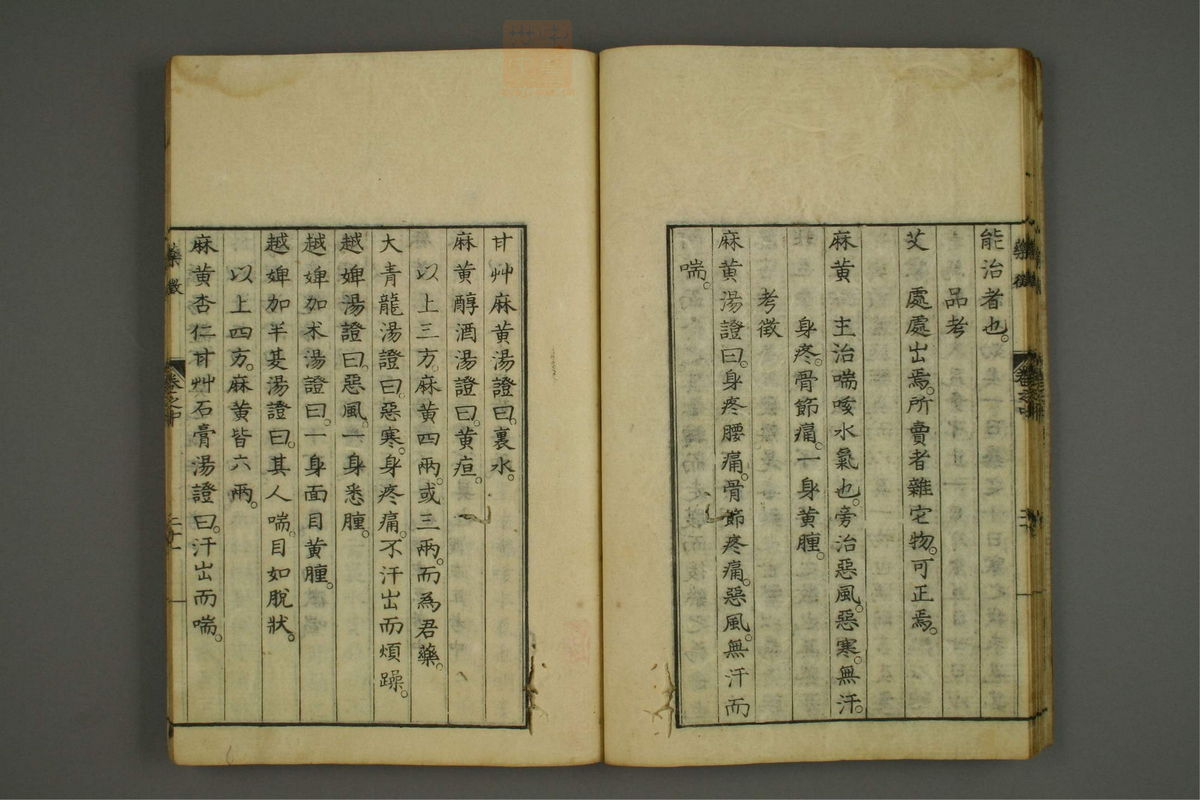 能治者也。
品考
艾　處處出焉。所賣者雜它物。可正焉。
麻黃　主治喘咳水氣也。旁治惡風。惡寒。無汗。
身疼。骨節痛。一身黃腫。
考徵
麻黃湯證曰。身疼腰痛。骨節疼痛。惡風。無汗而
喘。
甘艸麻黃湯證曰。裏水。
麻黃醇酒湯證曰。黃疸。
以上三方。麻黃四兩。或三兩。而為君藥。
大青龍湯證曰。惡寒。身疼痛。不汗出而煩躁。
越婢湯證曰。惡風。一身悉腫。
越婢加朮湯證曰。一身面目黃腫。
越婢加半夏湯證曰。其人喘。目如脫狀。
以上四方。麻黃皆六兩。
麻黃杏仁甘艸石膏湯證曰。汗出而喘。
藥徵
卷之中